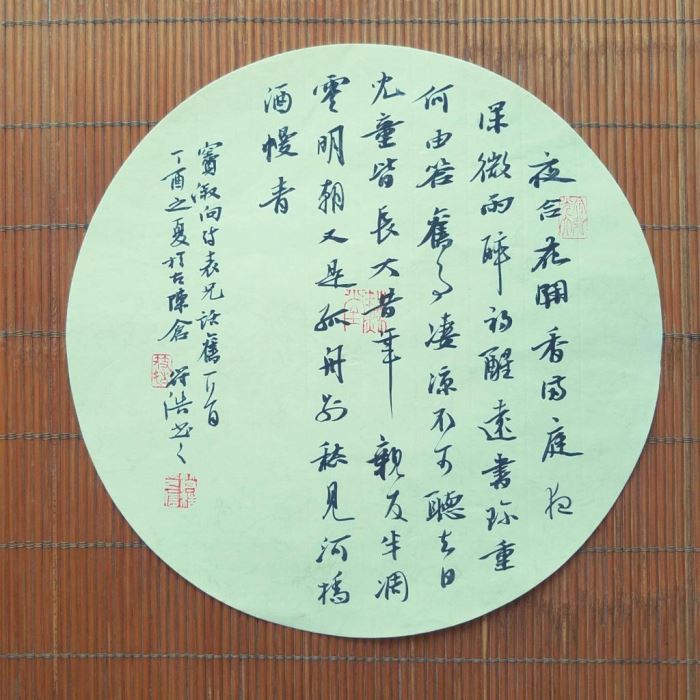 夜合花開香滿庭夜
深微雨醉初醒遠書珍重
何由答舊事淒涼不可聽去日
兒童皆長大昔年親友半凋
零明朝又是孤舟別愁見河橋
酒幔青
竇叔向詩表兄話舊一首
丁酉之夏於古陳倉 符浩書